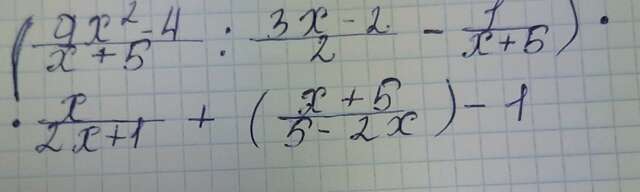 ( (9x² - 4)/(x + 5) : (3x - 2)/2 - 1/(x + 5) ) ·
· x/(2x + 1) + ( (x + 5)/(5 - 2x) ) - 1